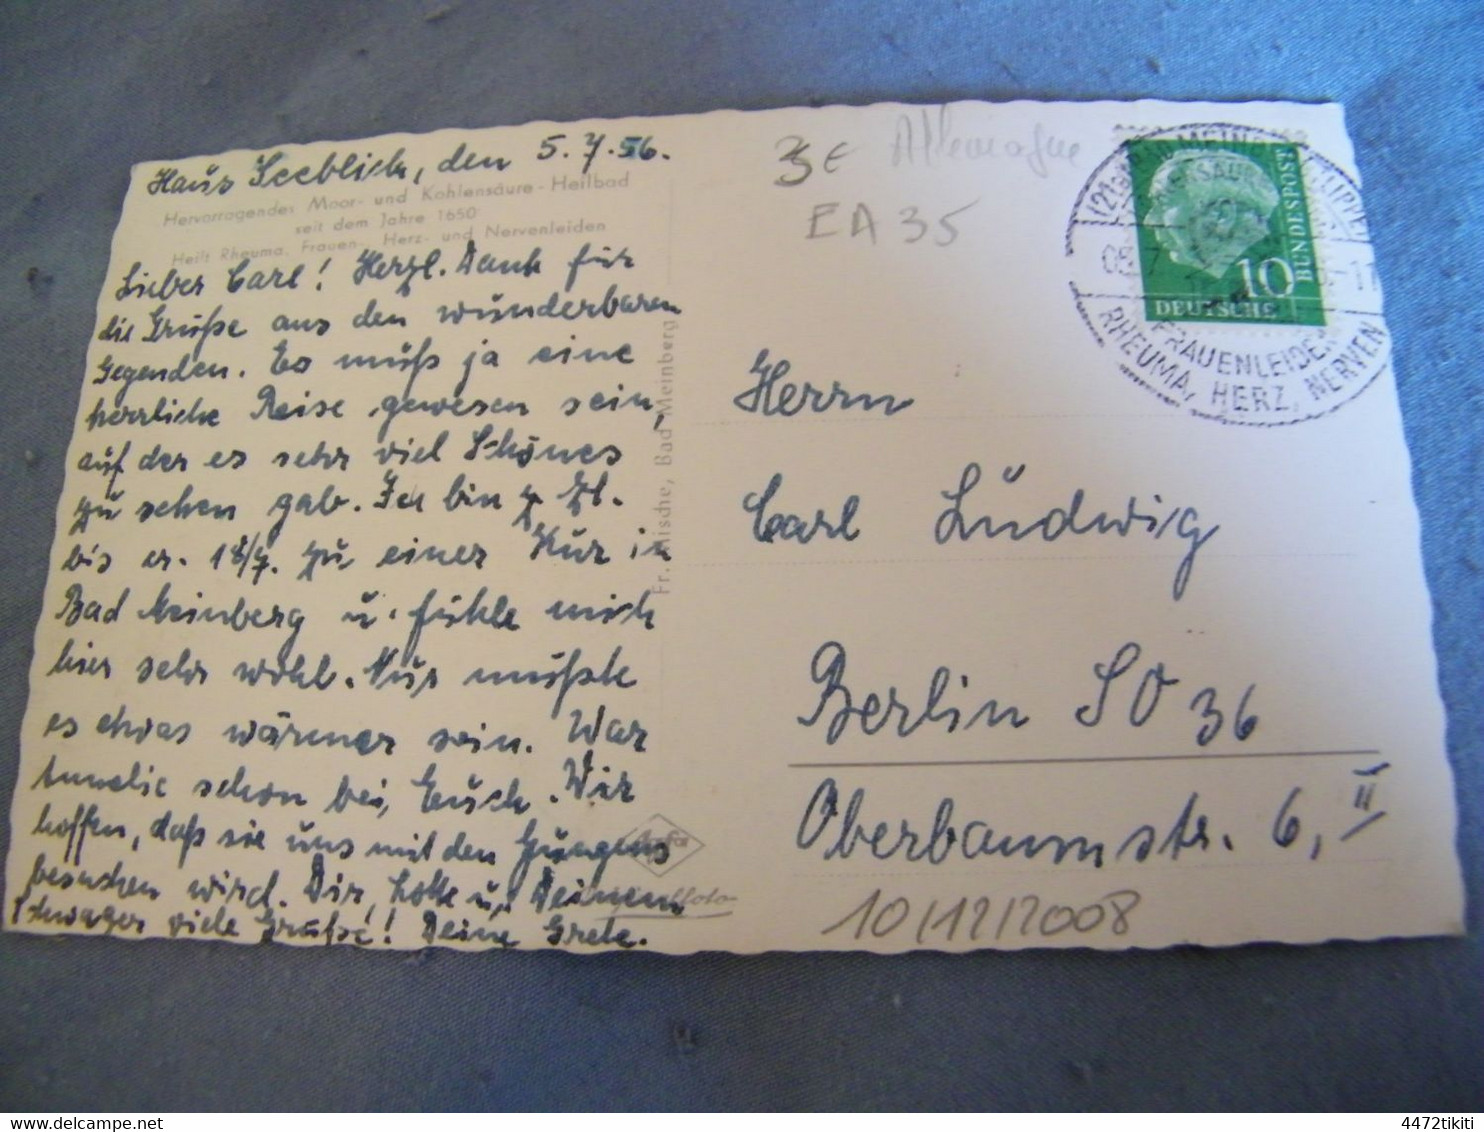 Haus Seeblick, den 5.7.56.
Hervorragendes Moor- und Kohlensäure-Heilbad
seit dem Jahre 1650
Heilt Rheuma, Frauen-, Herz- und Nervenleiden
Lieber Carl! Herzl. Dank für
die Grüße aus den wunderbaren
Gegenden. Es muß ja eine
herrliche Reise gewesen sein,
auf der es sehr viel Schönes
zu sehen gab. Ich bin z. Zt.
bis 18/7. zu einer Kur in
Bad Meinberg u. fühle mich
hier sehr wohl. Nur müßte
es etwas wärmer sein. War
schon bei Euch. Wir
hoffen, daß sie uns mit den Jungens
besuchen wird. Dir, Lotte u. Deinem
Schwager viele Grüße! Deine Grete.
Fr. Mische, Bad Meinberg
Agfa
3€ Allemagne
EA 35
BUNDESPOST
10
DEUTSCHE
FRAUENLEIDEN
RHEUMA, HERZ, NERVEN
Herrn
Carl Ludwig
Berlin SO 36
Oberbaumstr. 6, II
10/12/2008
www.delcampe.net
4472tikiti